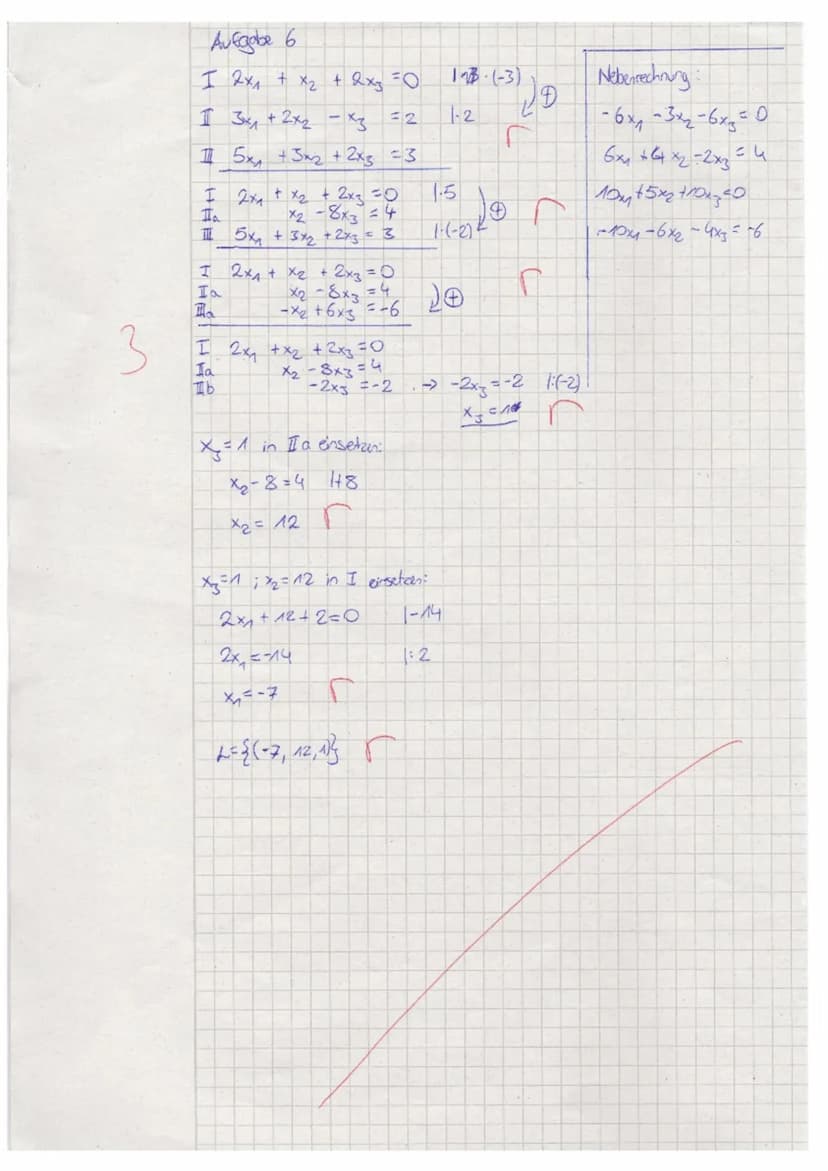 Aufgabe 6
I 2x₁ + x₂ + 2x₃ = 0 |·(-3)
II 3x₁ + 2x₂ - x₃ = 2 |·2
III 5x₁ + 3x₂ + 2x₃ = 3
I 2x₁ + x₂ + 2x₃ = 0 |·5
IIa x₂ - 8x₃ = 4
III 5x₁ + 3x₂ + 2x₃ = 3 |·(-2)
I 2x₁ + x₂ + 2x₃ = 0
IIa x₂ - 8x₃ = 4
IIIa -x₂ + 6x₃ = -6
I 2x₁ + x₂ + 2x₃ = 0
IIa x₂ - 8x₃ = 4
IIIb -2x₃ = -2 → -2x₃ = -2 |:(-2)
x₃ = 1
x₃ = 1 in IIa einsetzen:
x₂ - 8 = 4 |+8
x₂ = 12
x₃ = 1 ; x₂ = 12 in I einsetzen:
2x₁ + 12 + 2 = 0 |-14
2x₁ = -14 |:2
x₁ = -7
L = {(-7, 12, 1)}
Nebenrechnung:
-6x₁ - 3x₂ - 6x₃ = 0
6x₁ + 4x₂ - 2x₃ = 4
10x₁ + 5x₂ + 10x₃ = 0
-10x₁ - 6x₂ - 4x₃ = -6
3